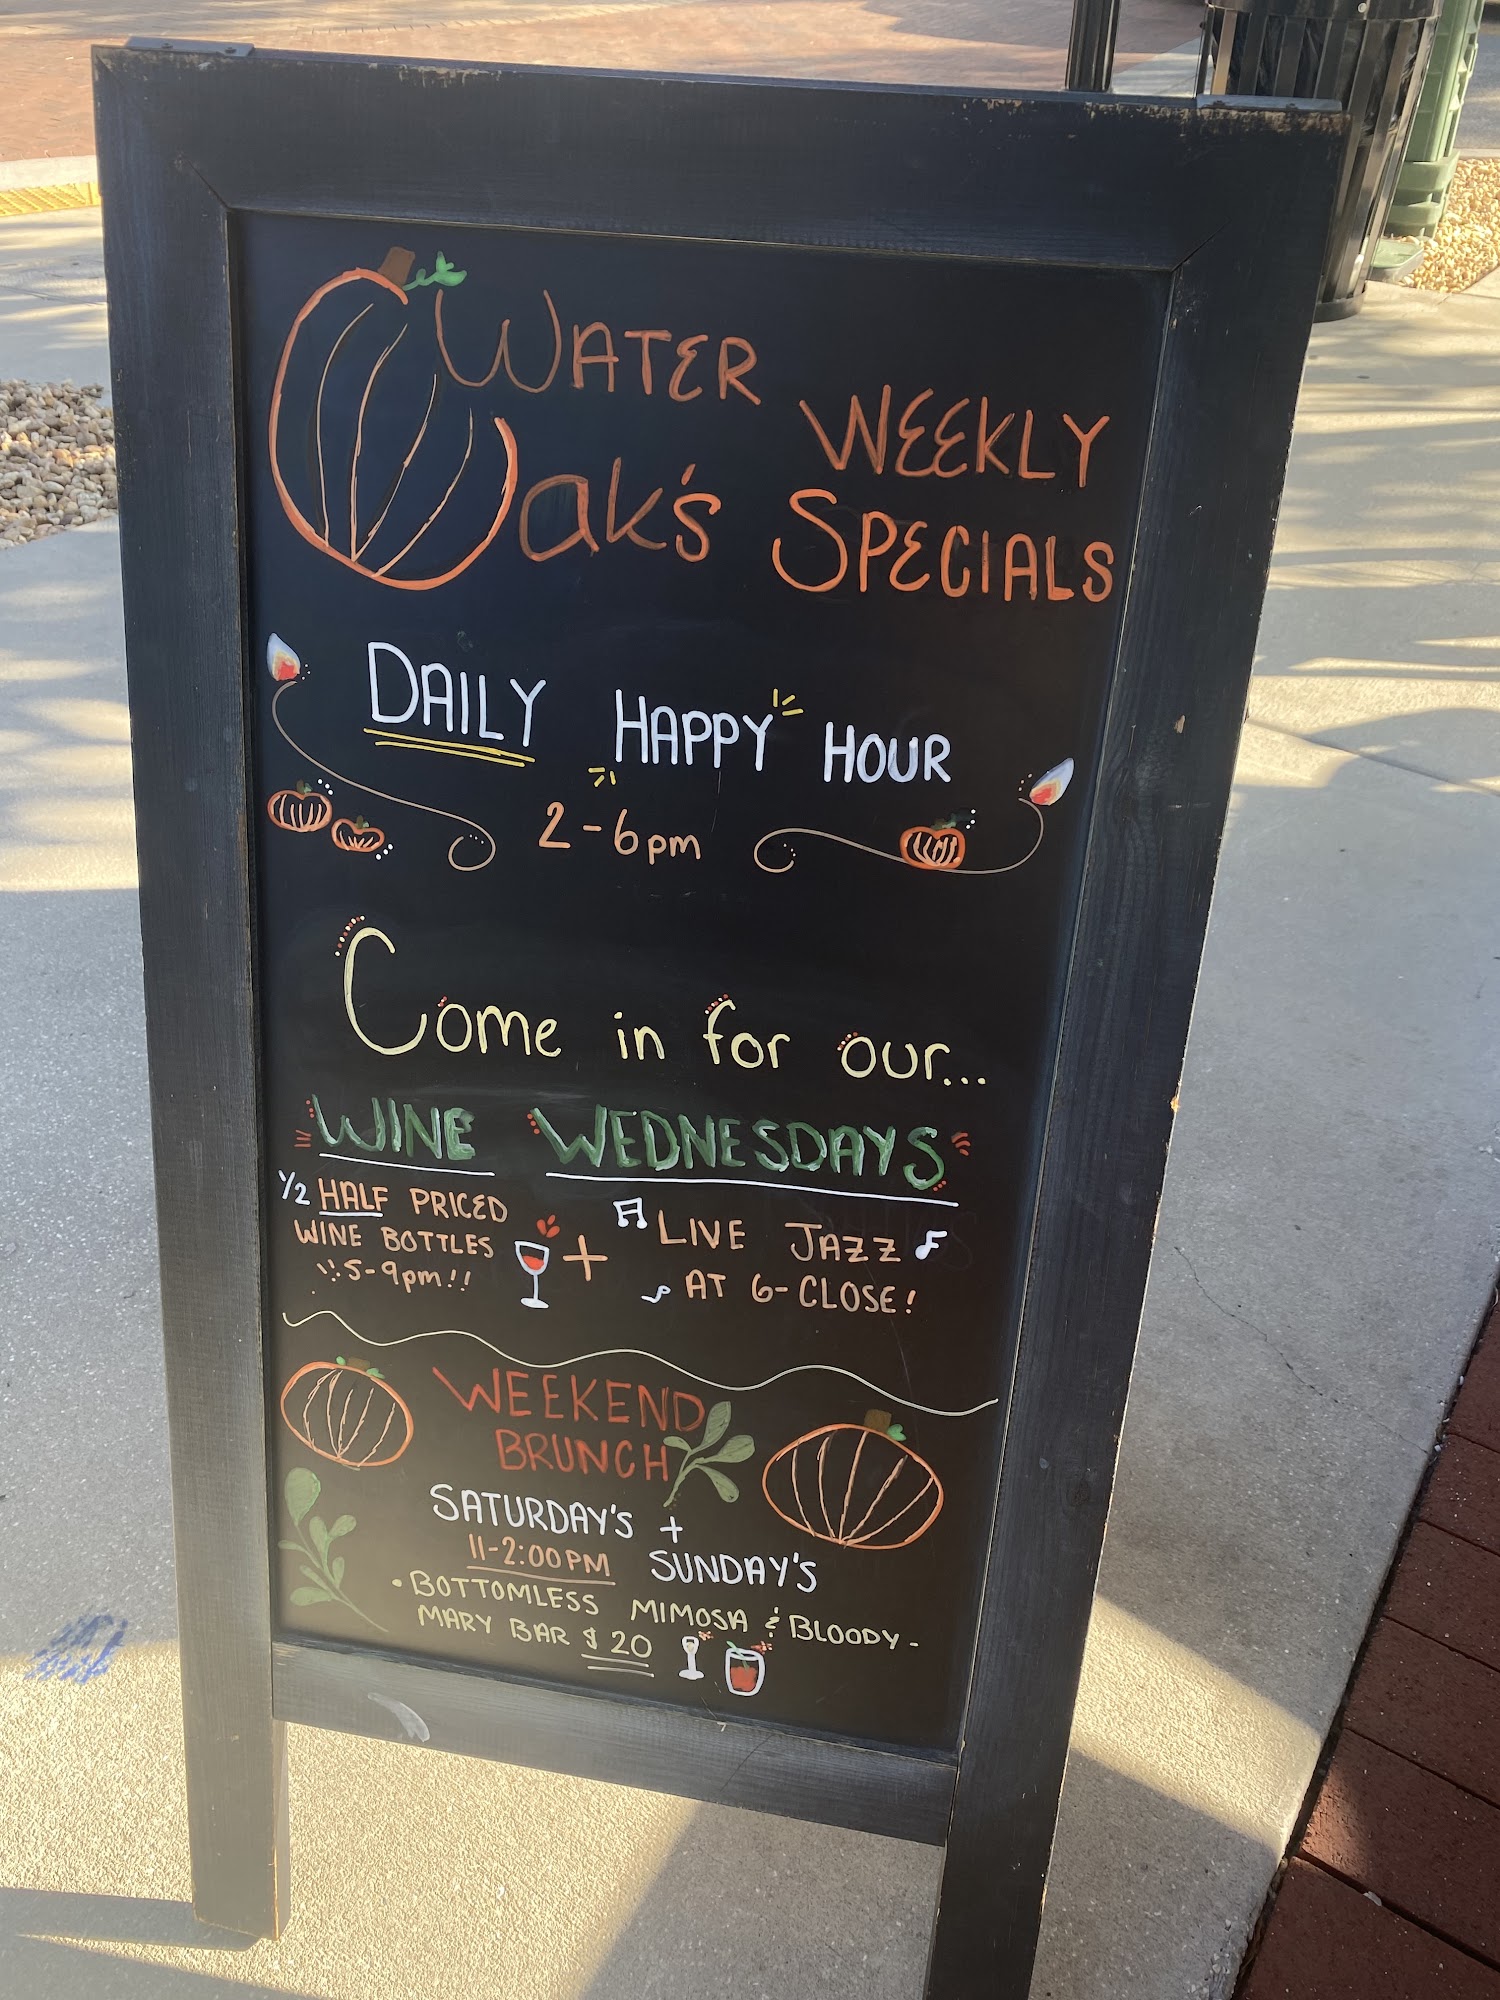 WATER
Oak's WEEKLY
SPECIALS
DAILY HAPPY HOUR
2-6pm
Come in for our...
WINE WEDNESDAYS
1/2 HALF PRICED
WINE BOTTLES
5-9pm!!
+
LIVE JAZZ
AT 6-CLOSE!
WEEKEND
BRUNCH
SATURDAY'S +
SUNDAY'S
11-2:00PM
•BOTTOMLESS MIMOSA & BLOODY-
MARY BAR $20